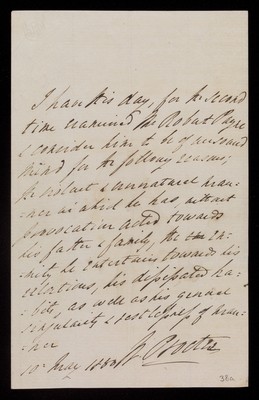 I have this day, for the second
time examined Mr Robert Payne
& consider him to be of unsound
mind for the following reasons;
the violent & unnatural man-
-ner in which he has, without
provocation acted towards
his father & family, the en-
-mity he entertains towards his
relations, his dissipated ha-
-bits, as well as his general
singularity & restlessness of man-
-ner
10th May
38a